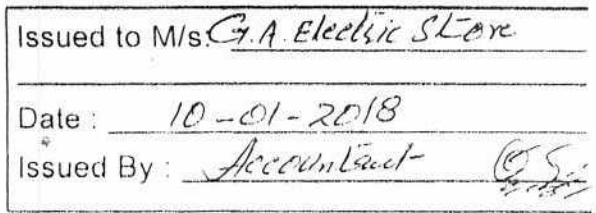 Issued to M/s. G.A. Electric Store
Date : 10-01-2018
Issued By : Accountant